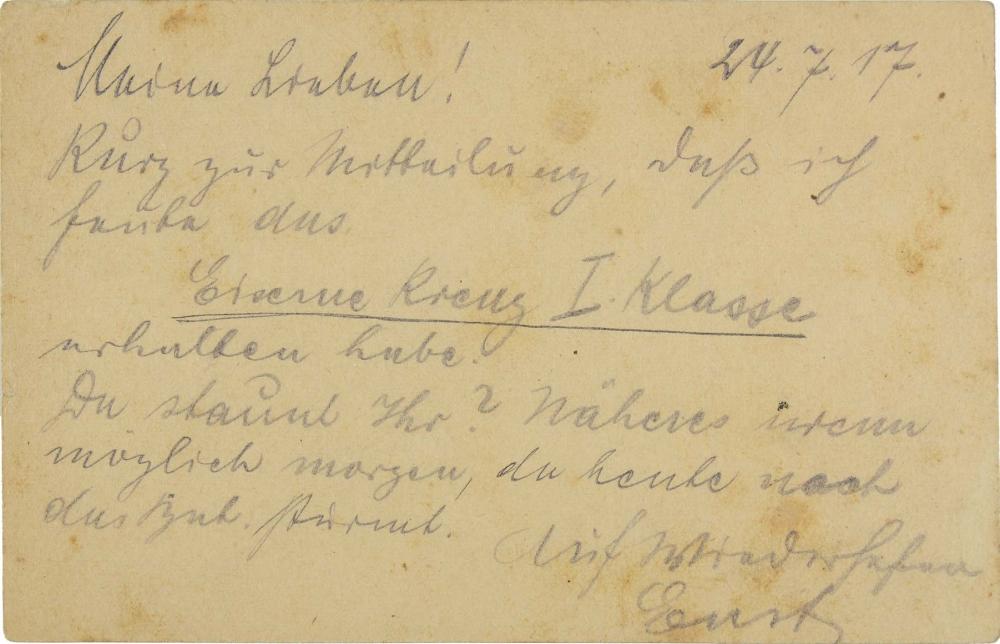 24.7.17.
Meine Lieben!
Kurz zur Mitteilung, daß ich
heute das
Eiserne Kreuz I. Klasse
erhalten habe.
Da staunt Ihr? Näheres wenn
möglich morgen, da heute noch
das Bat. stürmt.
Auf Wiedersehen
Ernst